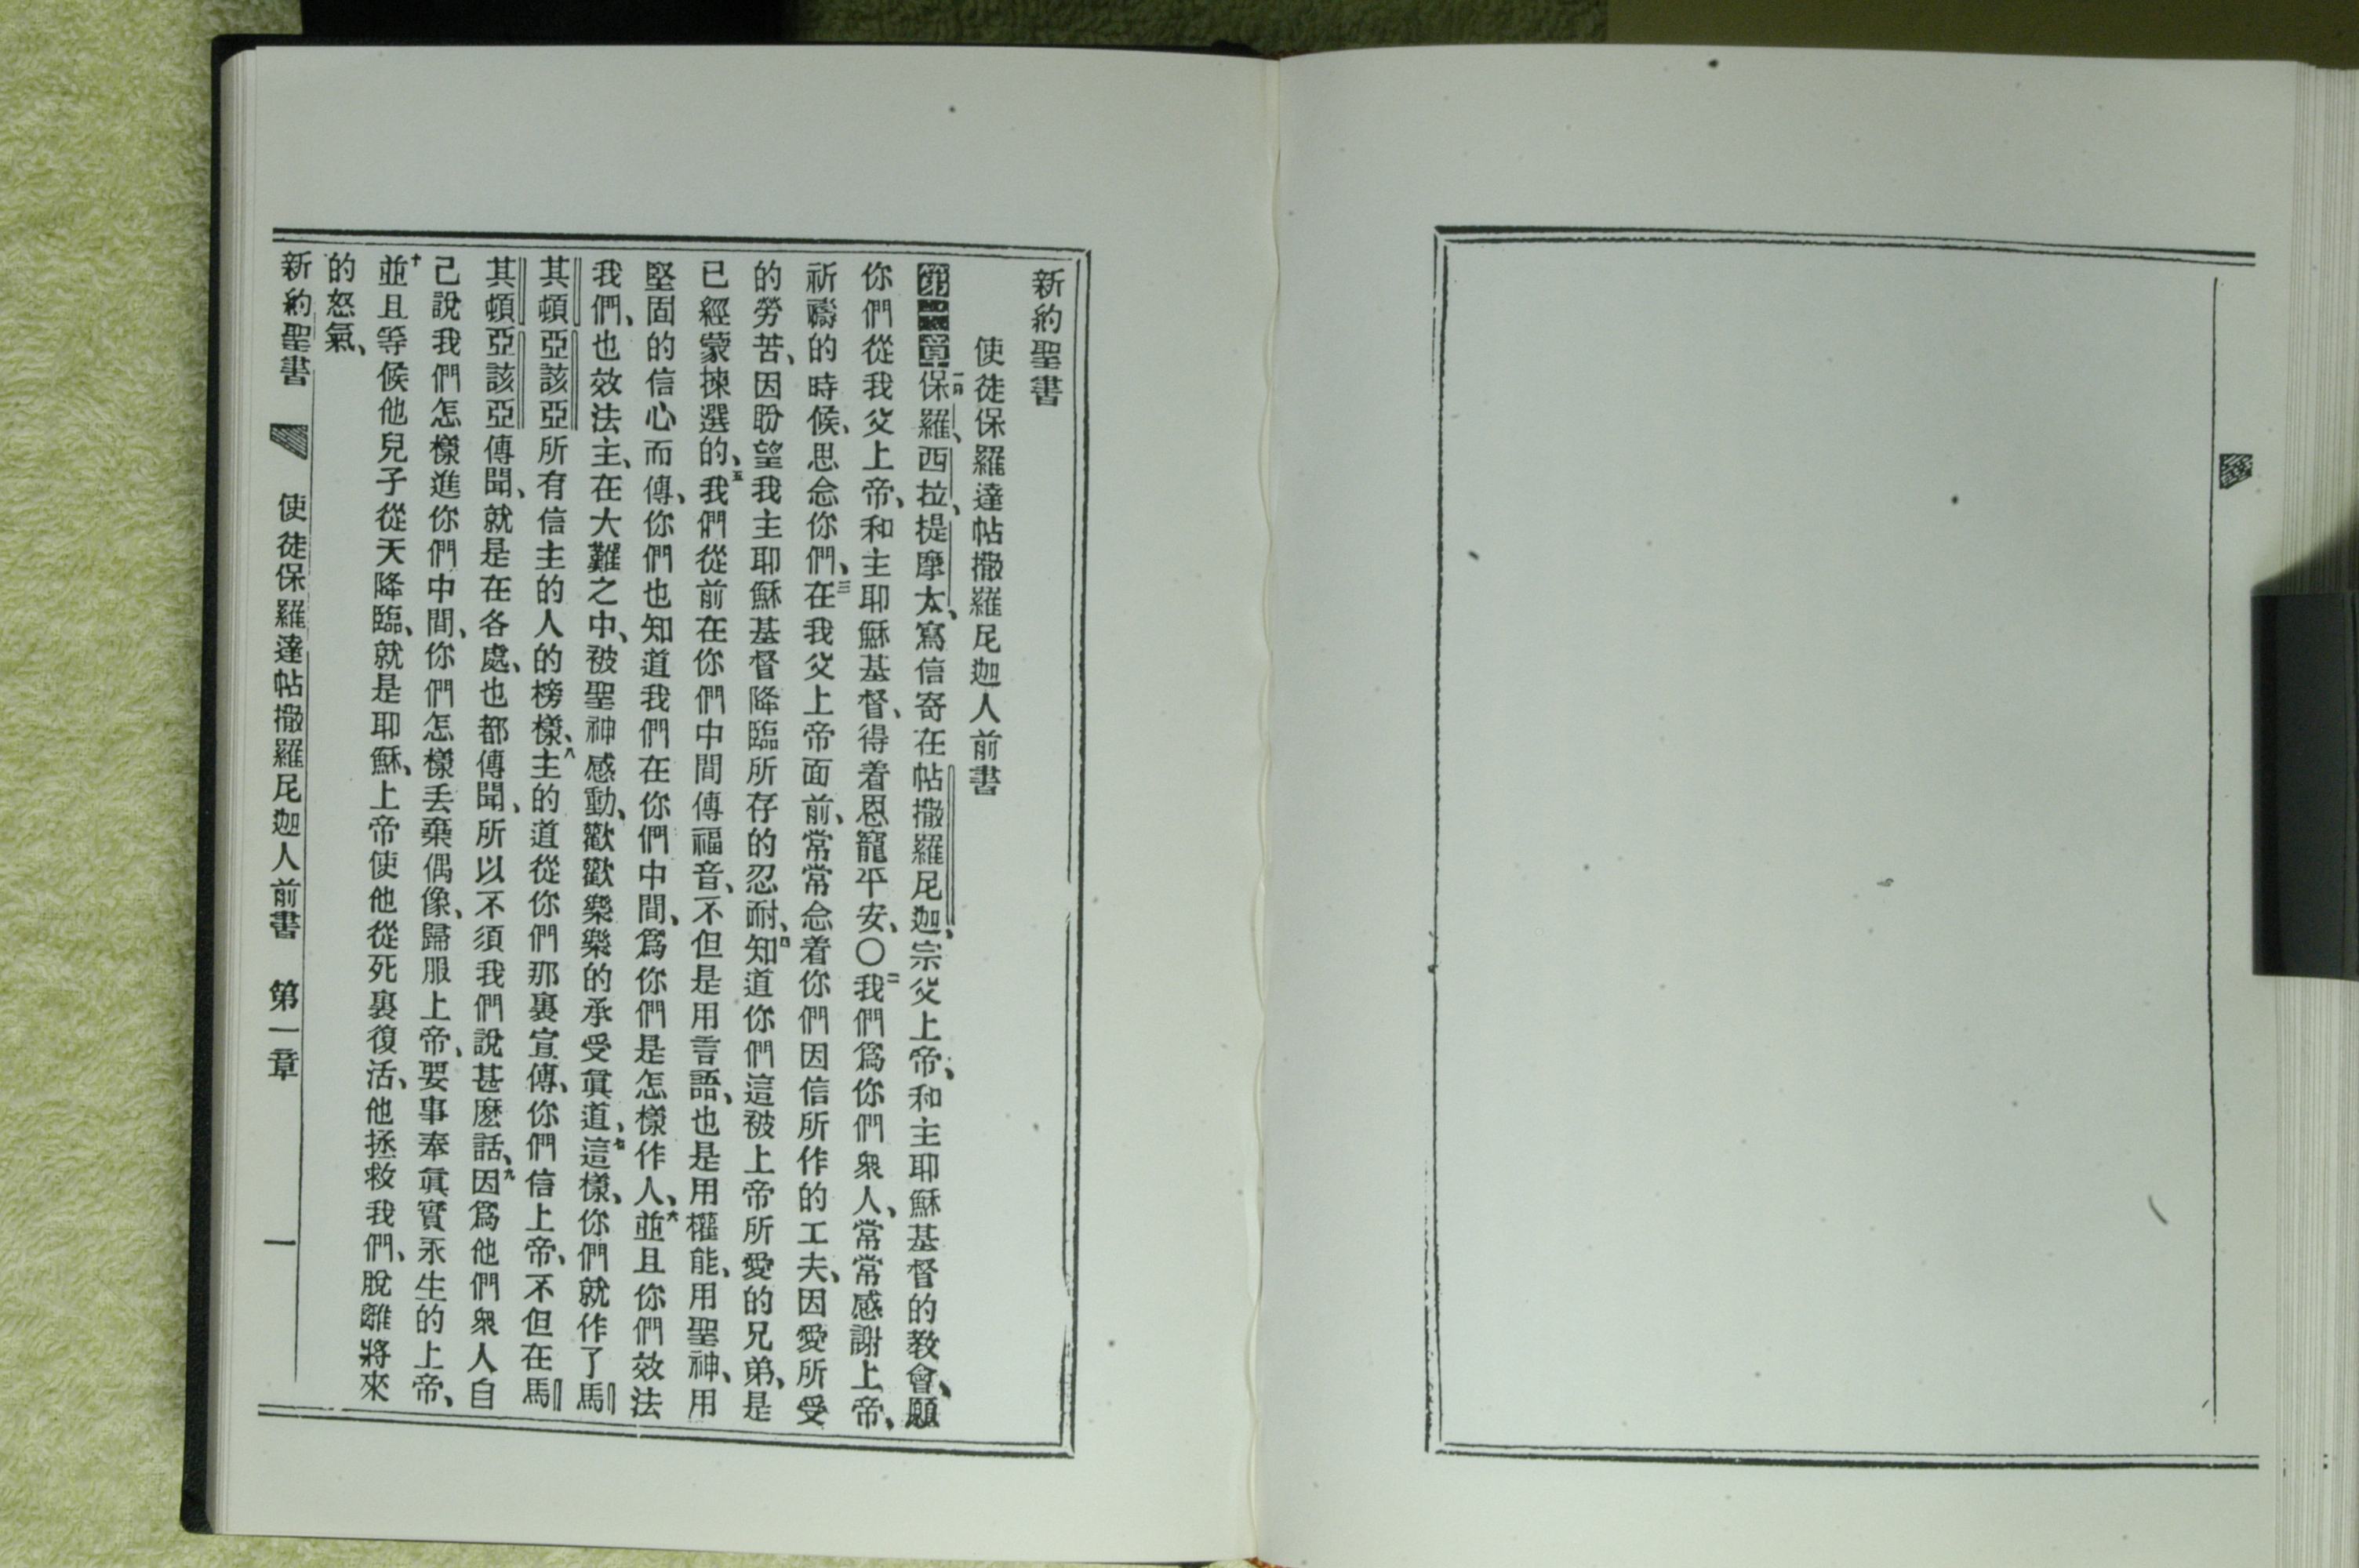 新約聖書
使徒保羅達帖撒羅尼迦人前書
第一章一保羅、西拉、提摩太、寫信寄在帖撒羅尼迦、宗父上帝、和主耶穌基督的教會、願
你們從我父上帝、和主耶穌基督、得着恩寵平安、〇二我們爲你們衆人、常常感謝上帝、
祈禱的時候、思念你們、三在我父上帝面前、常常念着你們因信所作的工夫、因愛所受
的勞苦、因盼望我主耶穌基督降臨所存的忍耐、四知道你們這被上帝所愛的兄弟、是
已經蒙揀選的、五我們從前在你們中間傳福音、不但是用言語、也是用權能、用聖神、用
堅固的信心而傳、你們也知道我們在你們中間、爲你們是怎樣作人、六並且你們效法
我們、也效法主、在大難之中、被聖神感動、歡歡樂樂的承受眞道、七這樣、你們就作了馬
其頓亞該亞所有信主的人的榜樣、八主的道從你們那裏宣傳、你們信上帝、不但在馬
其頓亞該亞傳聞、就是在各處、也都傳聞、所以不須我們說甚麽話、九因爲他們衆人自
己說我們怎樣進你們中間、你們怎樣丟棄偶像、歸服上帝、要事奉眞實永生的上帝、
十並且等候他兒子從天降臨、就是耶穌、上帝使他從死裏復活、他拯救我們、脫離將來
的怒氣、
新約聖書 使徒保羅達帖撒羅尼迦人前書 第一章 一